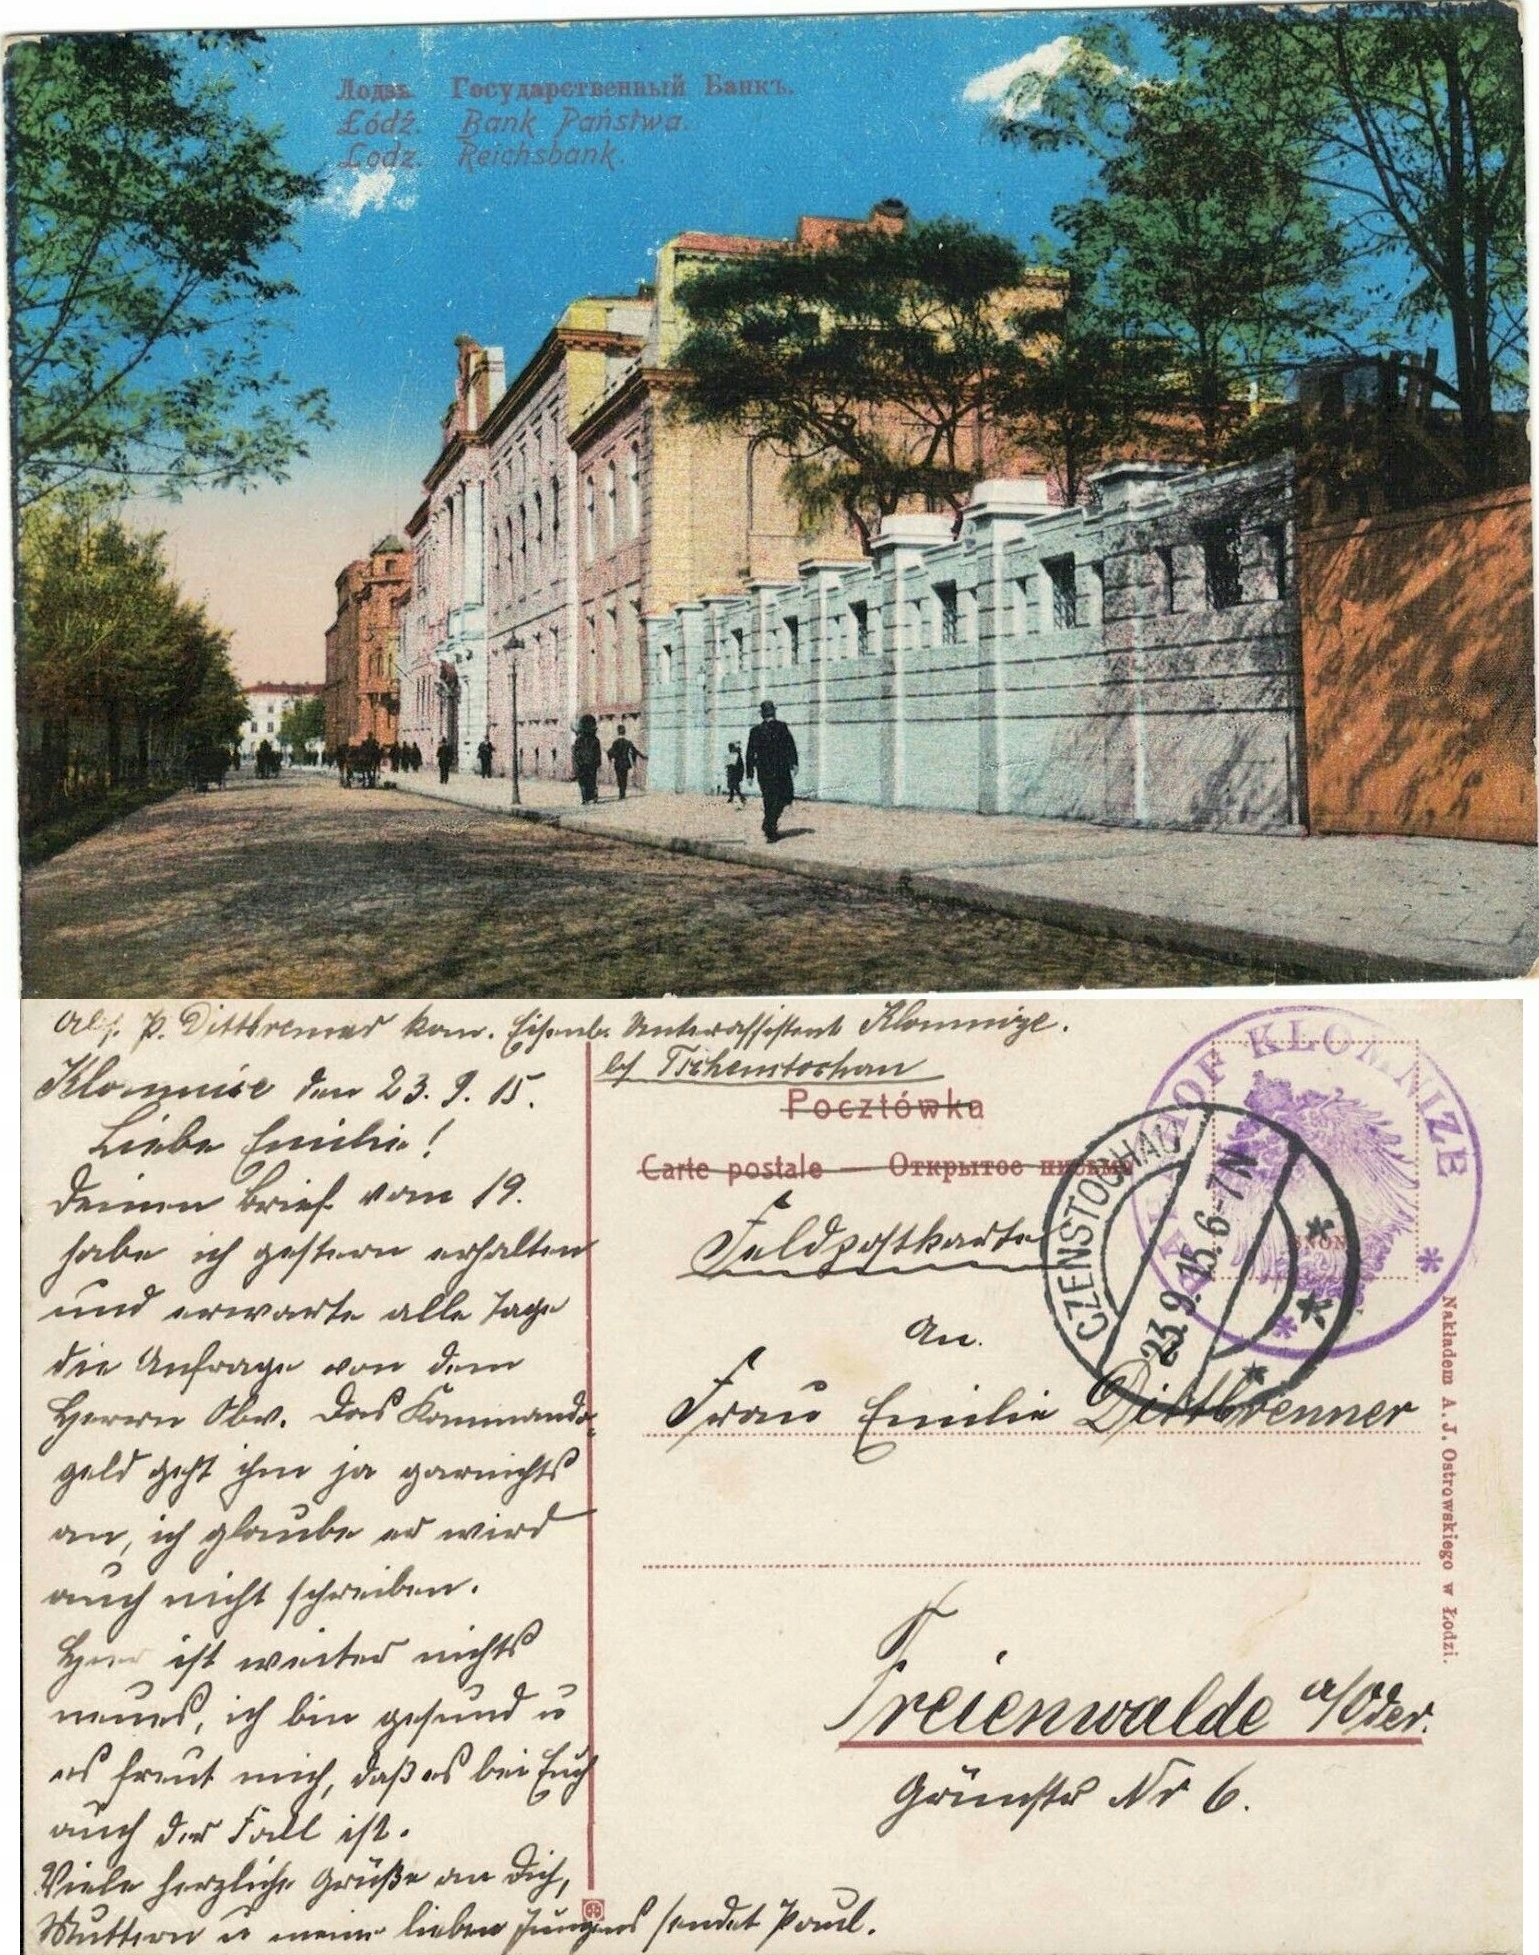 Лодзь. Государственный Банкъ.
Łódź. Bank Państwa.
Lodz. Reichsbank.
Abs. P. Dittbrenner kom. Eisenb. Unterassistent Klomnize.
b/ Tschenstochau
Klomnice den 23.9.15.
Liebe Emilie!
Deinen Brief vom 19.
habe ich gestern erhalten
und erwarte alle Tage
die Anfrage von dem
Herrn Obv. Das Kommando-
geld geht ihm ja garnichts
an, ich glaube er wird
auch nicht schreiben.
Hier ist weiter nichts
neues, ich bin gesund u
es freut mich, daß es bei Euch
auch der Fall ist.
Viele herzliche Grüße an Dich,
Muttern u meine lieben Jungens sendet Paul.
Pocztówka
Carte postale — Открытое письмо
Feldpostkarte
An.
Frau Emilie Dittbrenner
Freienwalde a/Oder.
Grünstr Nr 6.
KLOMNIZE
CZENSTOCHAU
23.9.15.6-7N
Nakładem A. J. Ostrowskiego w Łodzi.